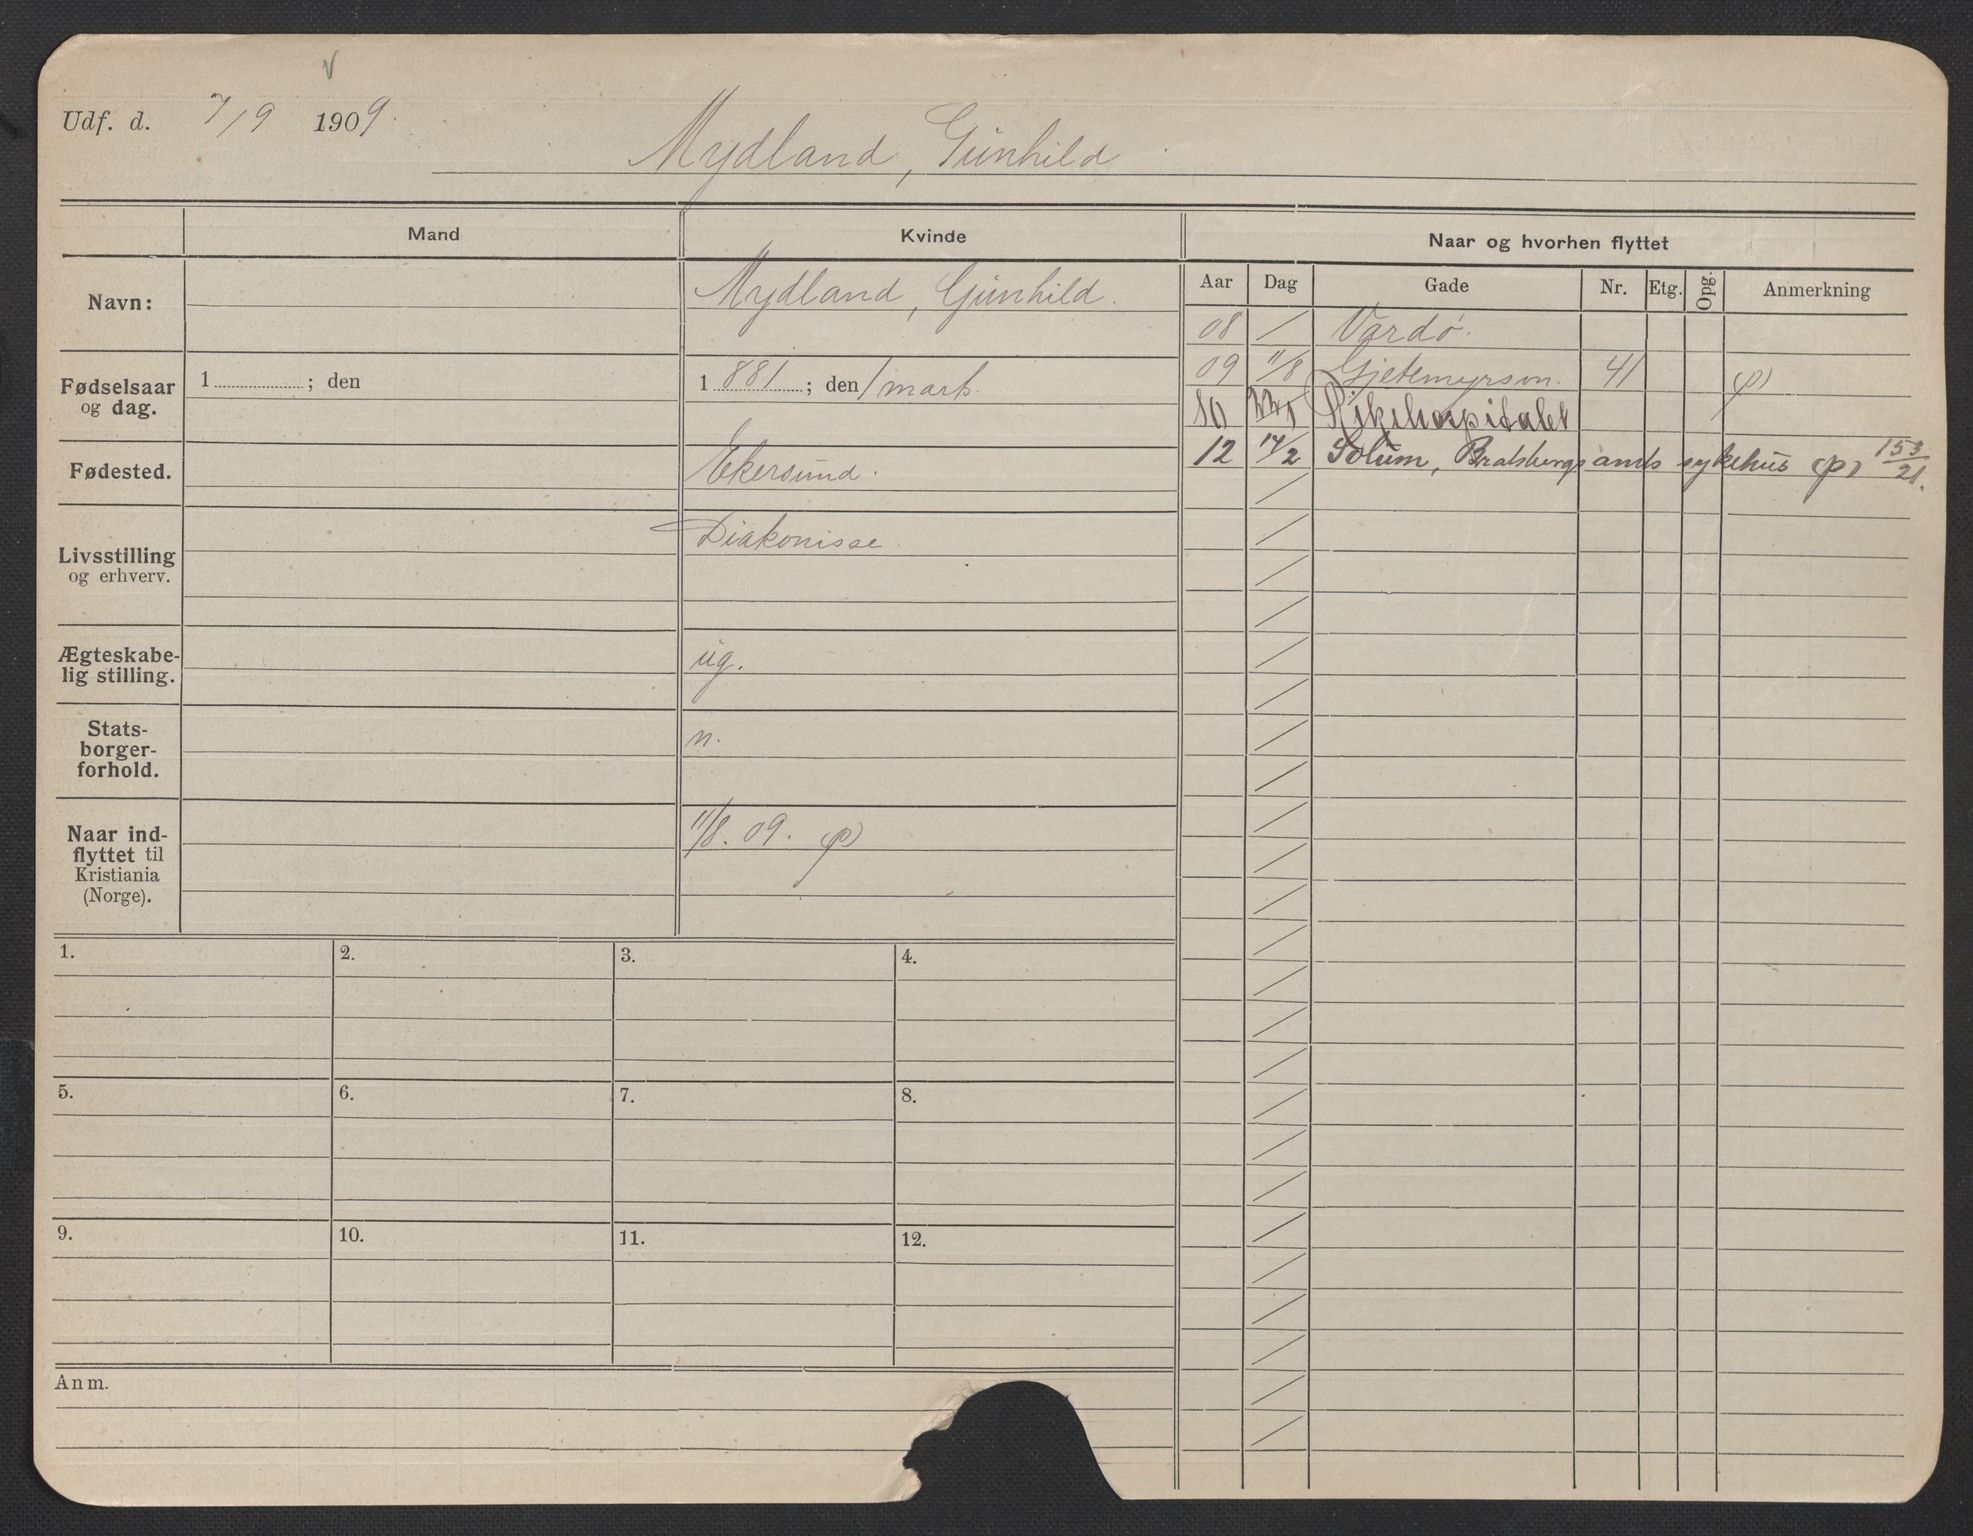 v
Udf. d. 7/9 1909.
Mydland, Gunhild
Mand
Kvinde
Naar og hvorhen flyttet
Aar Dag Gade Nr. Etg. Opg. Anmerkning
Navn:
Mydland, Gunhild.
Fødselsaar
og dag.
1 ; den
1 881 ; den / marts.
Fødested.
Ekersund.
Livsstilling
og erhverv.
Diakonisse
Ægteskabe-
lig stilling.
ug.
Stats-
borger-
forhold.
n.
Naar ind-
flyttet til
Kristiania
(Norge).
11/8. 09. (p)
08 / Vardø.
09 11/8 Gjetemyrsvn. 41 (p)
10 Rikshospitalet
12 14/2 Solum, Bratsbergs amts sykehus (p) 153/21.
1. 2. 3. 4.
5. 6. 7. 8.
9. 10. 11. 12.
Anm.